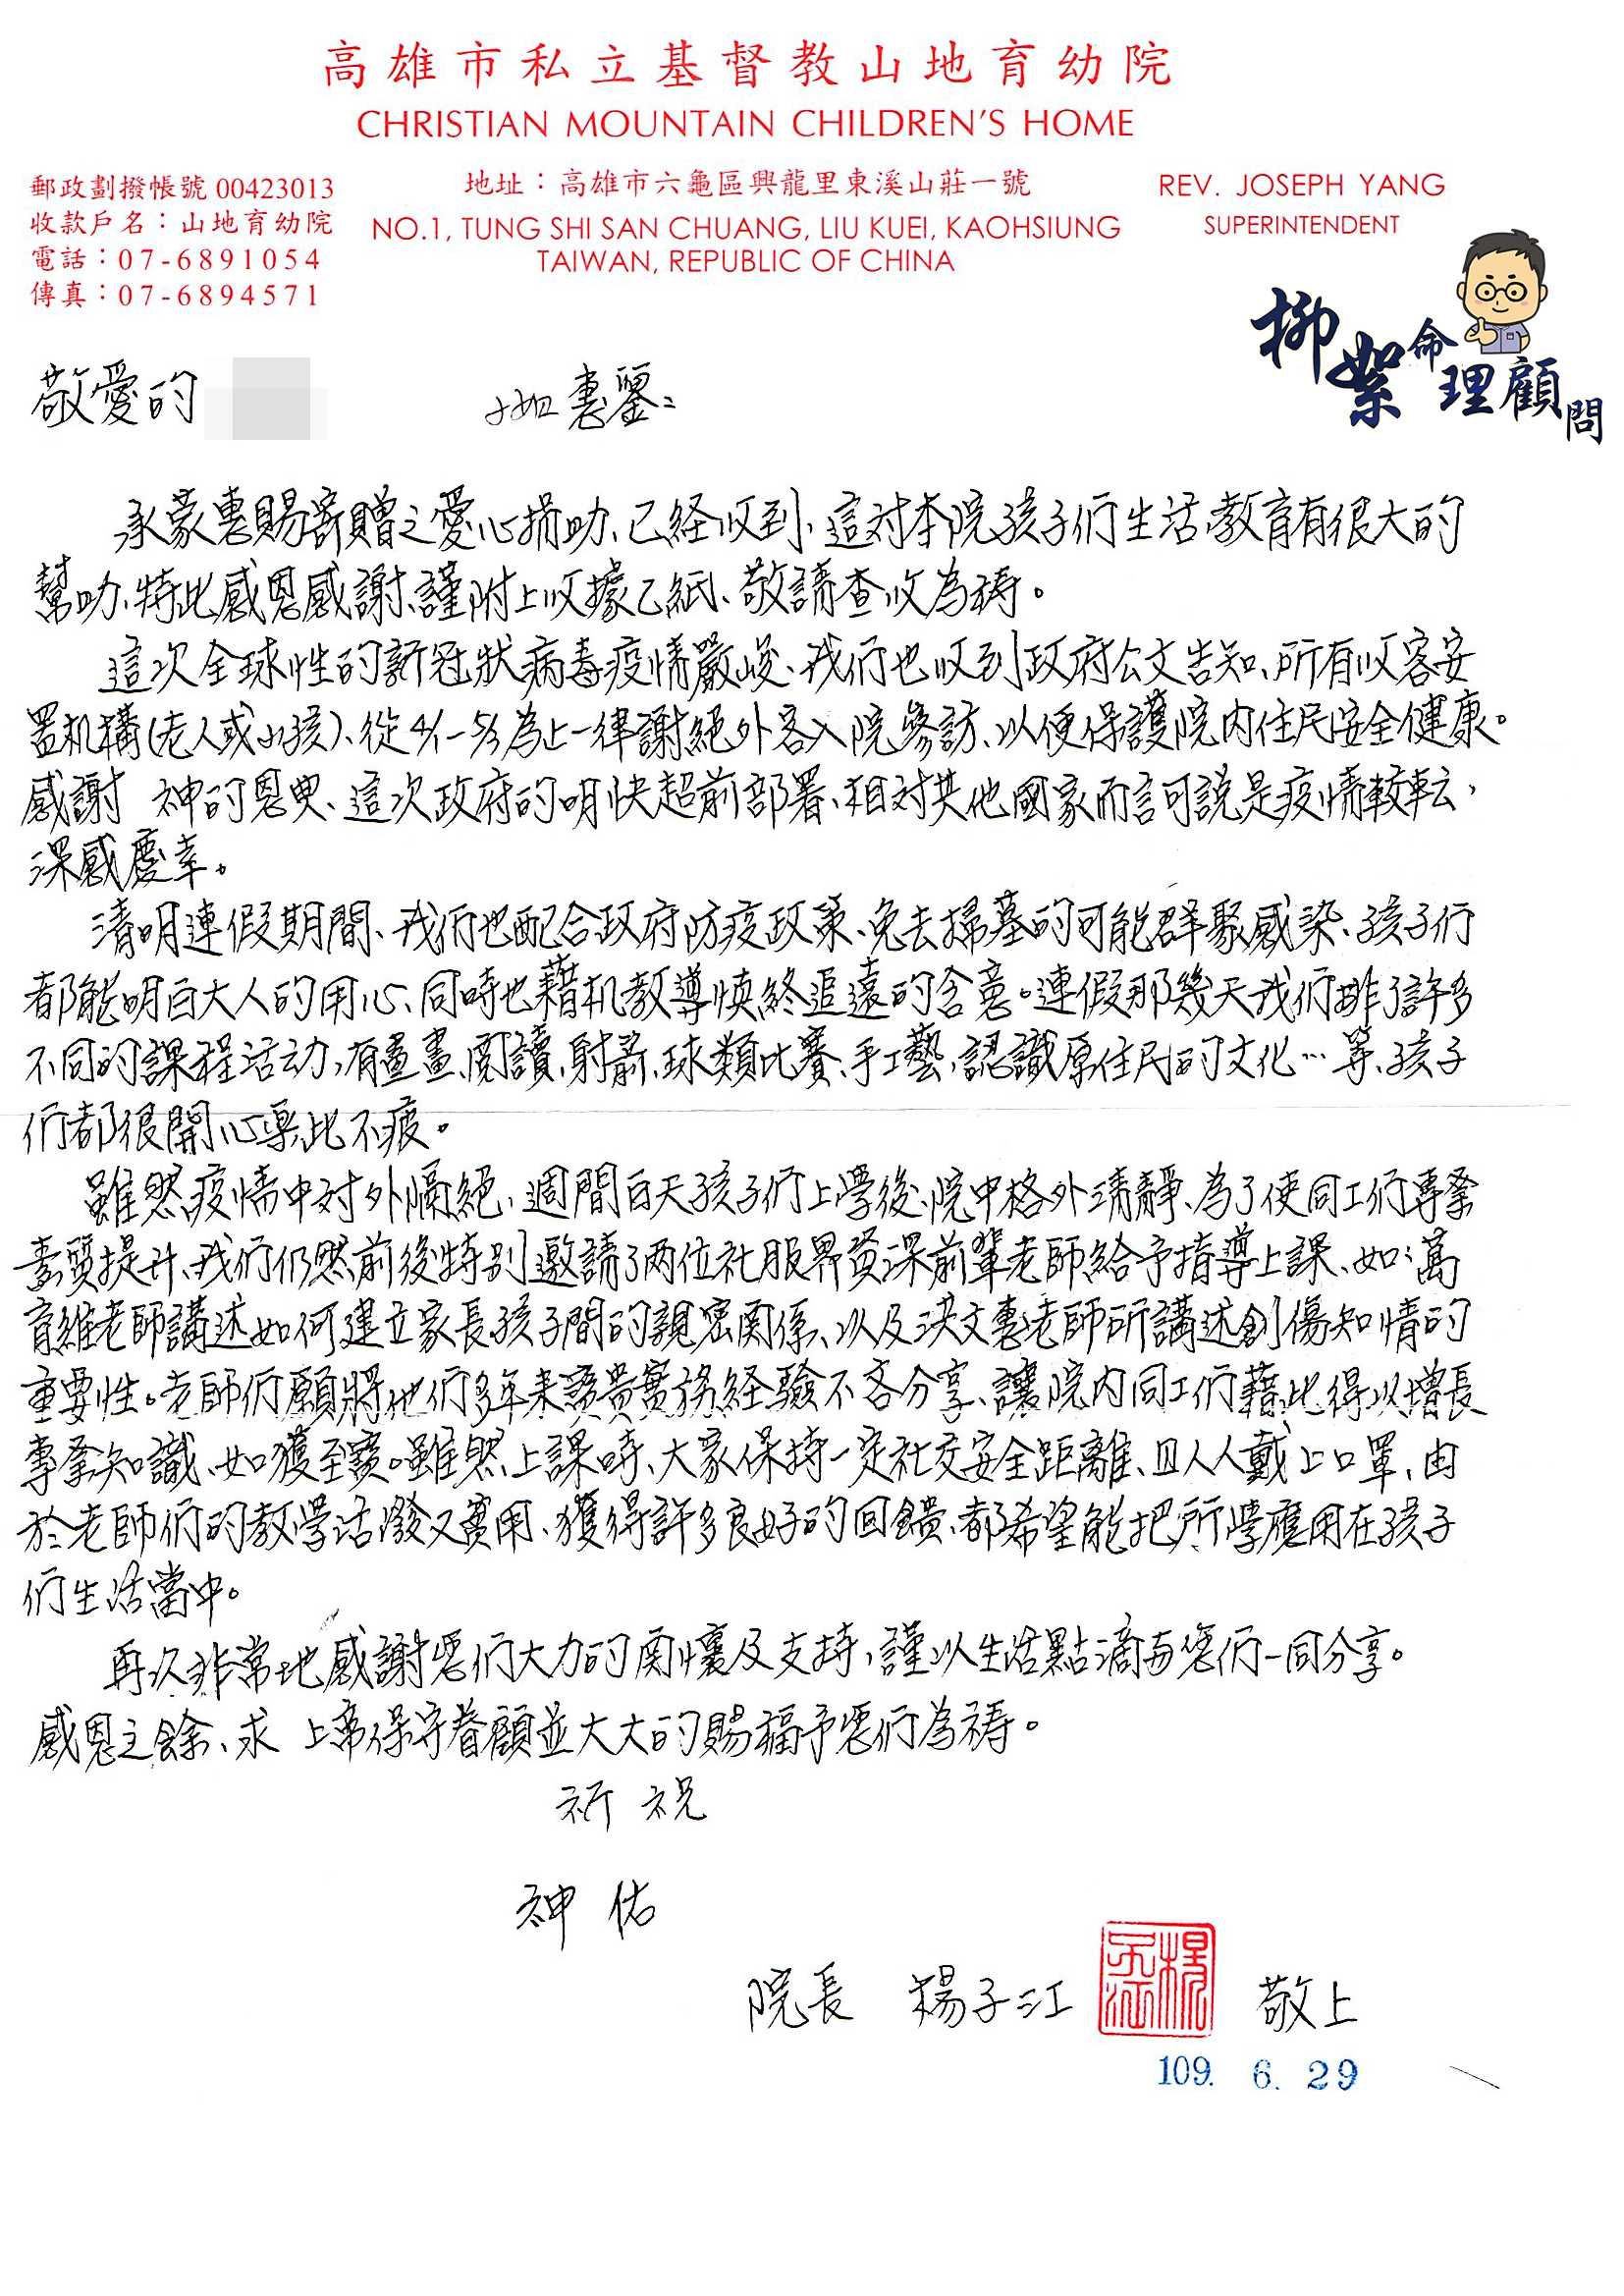 高雄市私立基督教山地育幼院
CHRISTIAN MOUNTAIN CHILDREN'S HOME
郵政劃撥帳號 00423013
收款戶名：山地育幼院
電話：07-6891054
傳真：07-6894571
地址：高雄市六龜區興龍里東溪山莊一號
NO.1, TUNG SHI SAN CHUANG, LIU KUEI, KAOHSIUNG
TAIWAN, REPUBLIC OF CHINA
REV. JOSEPH YANG
SUPERINTENDENT
柳絮命理顧問
敬愛的 小姐惠鑒：
承蒙惠賜寄贈之愛心捐助、已経收到、這对本院孩子們生活,教育有很大的
幫助、特此感恩感謝、謹附上收據乙紙、敬請查收為禱。
這次全球性的新冠狀病毒疫情嚴峻、我們也收到政府公文告知、所有收容安
置机構(老人或小孩)、從4/1-5/3為上一律謝絕外客入院參訪、以便保護院內住民安全健康。
感謝 神的恩典、這次政府的明快超前部署、相对其他國家而言可說是疫情較輕，
深感慶幸。
清明連假期間、我們也配合政府防疫政策、免去掃墓的可能群聚感染、孩子們
都能明白大人的用心、同時也藉机教導慎終追遠的含意。連假那幾天我們排了許多
不同的課程活动,有畫畫、閱讀、射箭、球類比賽、手工藝,認識原住民的文化…等、孩子
們都很開心樂此不疲。
雖然疫情中对外隔絕、週間白天孩子們上學後、院中格外清靜、為了使同工們專業
素質提升、我們仍然前後特別邀請了两位社服界資深前輩老師給予指導上課、如:萬
育維老師講述如何建立家長孩子間的親密関係、以及洪文惠老師所講述創傷知情的
重要性。老師們願將他們多年来寶貴實務経驗不吝分享、讓院內同工們藉此得以增長
專業知識、如獲至寶。雖然上課時、大家保持一定社交安全距離、且人人戴上口罩、由
於老師們的教學活潑又實用、獲得許多良好的回饋、都希望能把所學應用在孩子
們生活當中。
再次非常地感謝您們大力的関懷及支持,謹以生活點滴与您們一同分享。
感恩之餘、求 上帝保守眷顧並大大的賜福予您們為禱。
祈祝
神佑
院長 楊子江 敬上
109. 6. 29